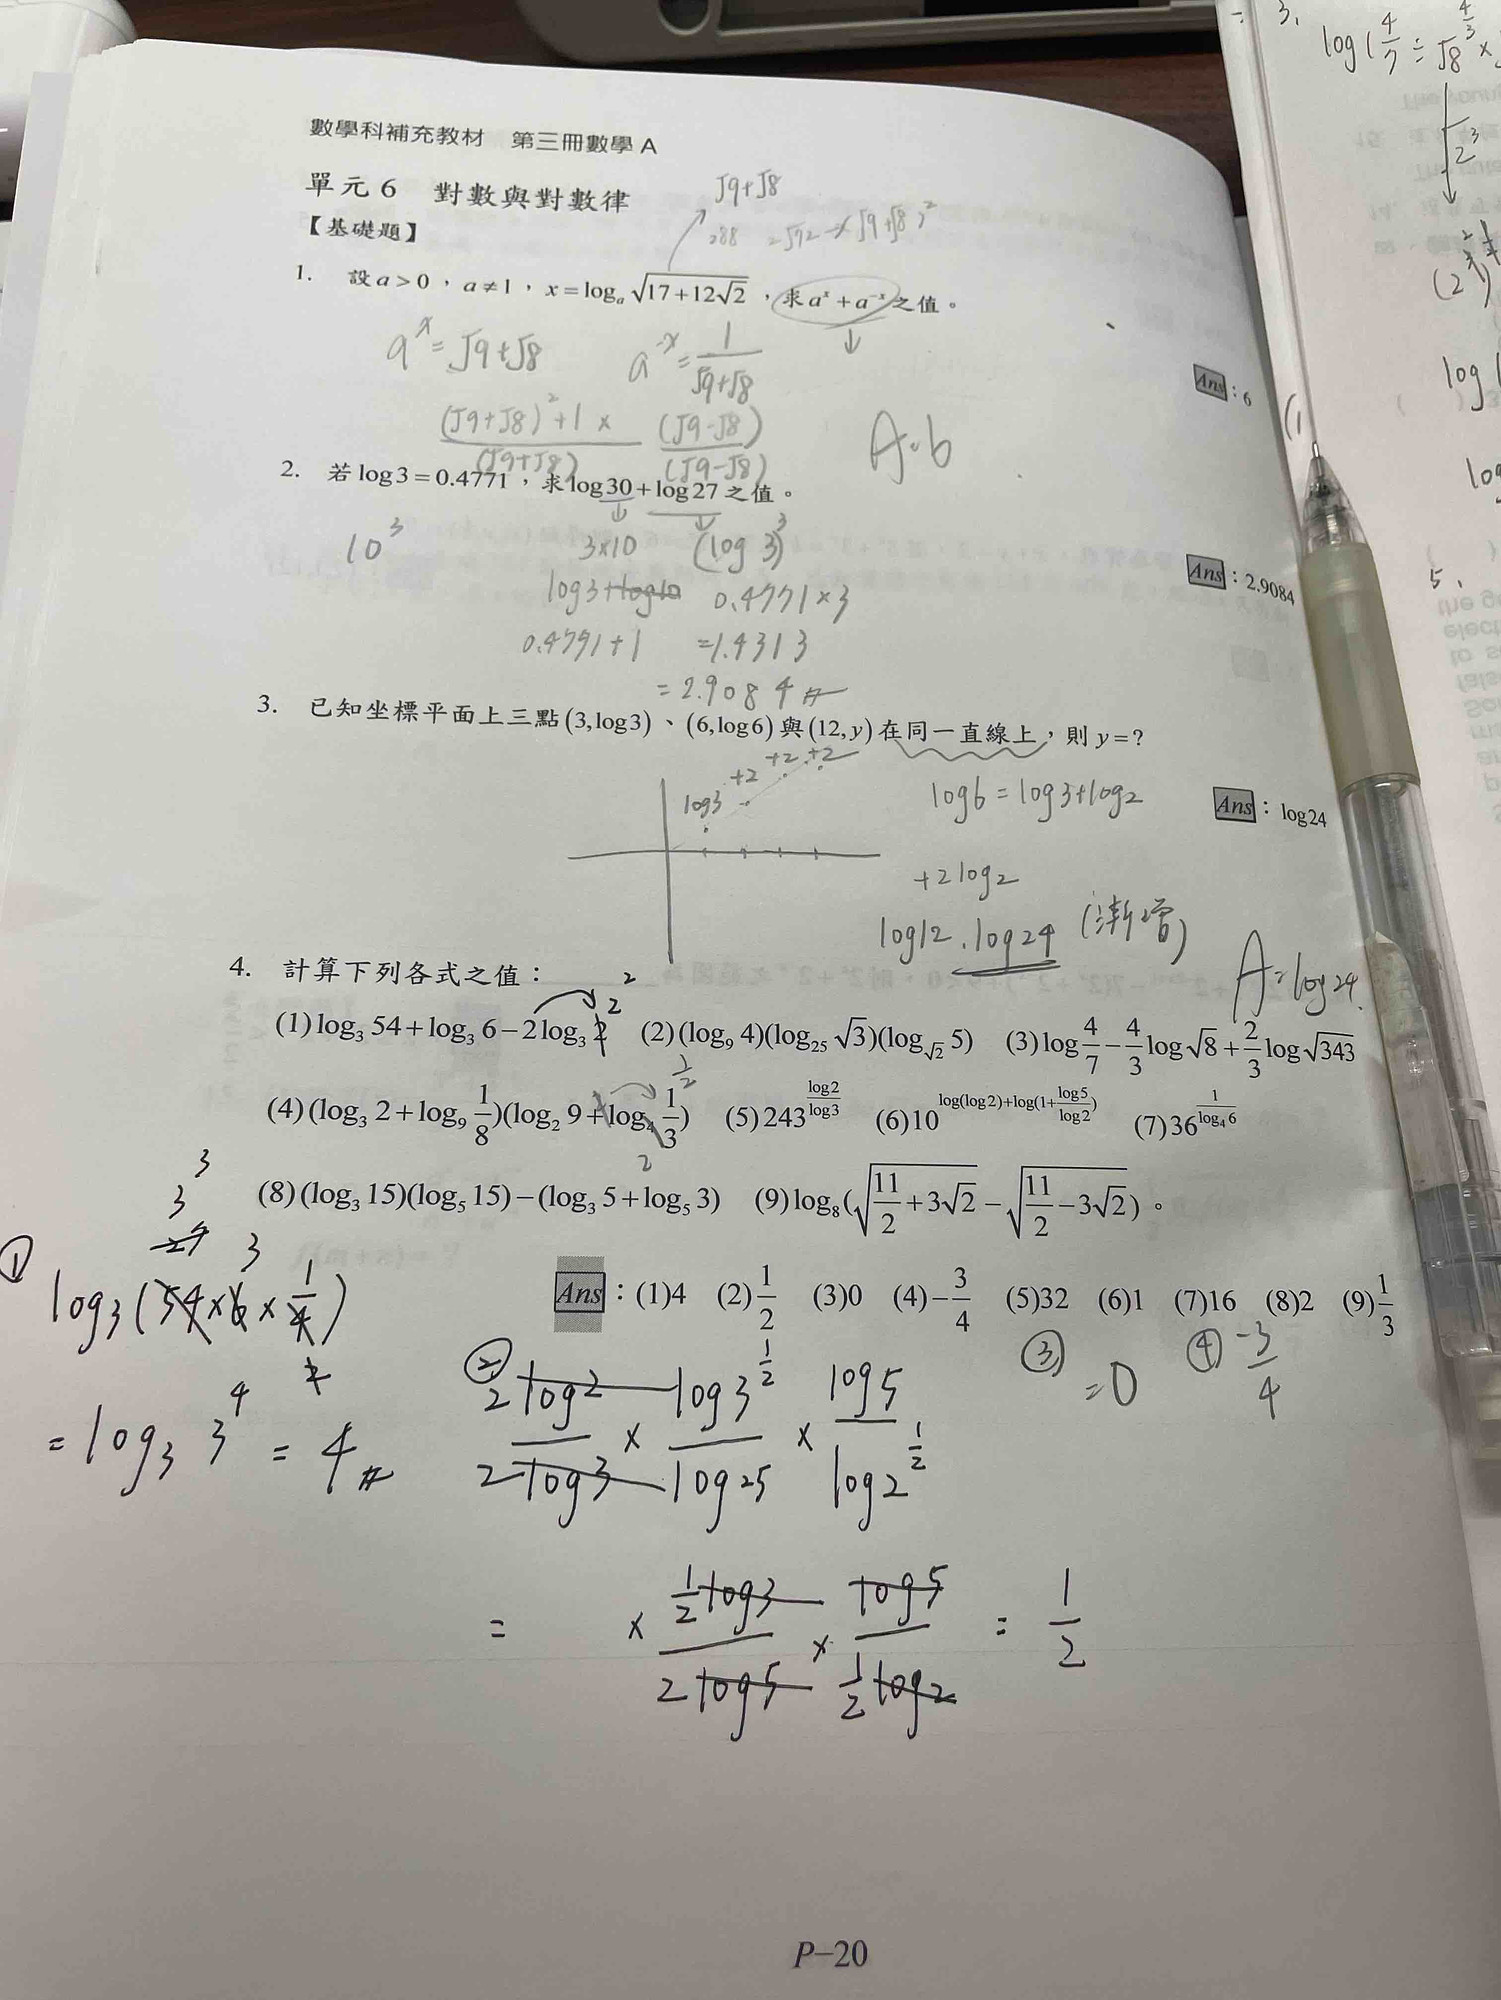 數學科補充教材 第三冊數學 A
單元 6 對數與對數律
√9+√8
【基礎題】
288 2√72 → (√9+√8)²
1. 設 a > 0 , a ≠ 1 , x = logₐ √(17+12√2) , 求 aˣ + a⁻ˣ 之值。
aˣ = √9+√8 a⁻ˣ = 1/(√9+√8)
Ans : 6
((√9+√8)²+1)/(√9+√8) × (√9-√8)/(√9-√8) A=6
2. 若 log3 = 0.4771 , 求 log30 + log27 之值。
10³ 3×10 (log 3)³
Ans : 2.9084
log3+log10 0.4771×3
0.4791+1 =1.4313
= 2.9084 #
3. 已知坐標平面上三點 (3, log3) 、 (6, log6) 與 (12, y) 在同一直線上 , 則 y = ?
+2 +2 +2
log3 log6 = log3+log2
Ans : log24
+2log2
log12 . log24 (漸增)
A=log24
4. 計算下列各式之值 :
(1) log₃ 54 + log₃ 6 − 2 log₃ 2 (2) (log₉ 4)(log₂₅ √3)(log_√2 5) (3) log 4/7 − 4/3 log √8 + 2/3 log √343
(4) (log₃ 2 + log₉ 1/8)(log₂ 9 + log₄ 1/3) (5) 243^(log2/log3) (6) 10^(log(log2)+log(1+log5/log2)) (7) 36^(1/log₄ 6)
(8) (log₃ 15)(log₅ 15) − (log₃ 5 + log₅ 3) (9) log₈ (√(11/2 + 3√2) − √(11/2 − 3√2)) 。
Ans : (1)4 (2) 1/2 (3)0 (4) −3/4 (5)32 (6)1 (7)16 (8)2 (9) 1/3
① log₃(54×6×1/4)
= log₃ 3⁴ = 4 #
② 2log2/2log3 × log3^(1/2)/log25 × log5/log2^(1/2)
③ =0 ④ -3/4
= × ½log3/2log5 × log5/½log2 = 1/2
P–20
3.
2³
log
5.